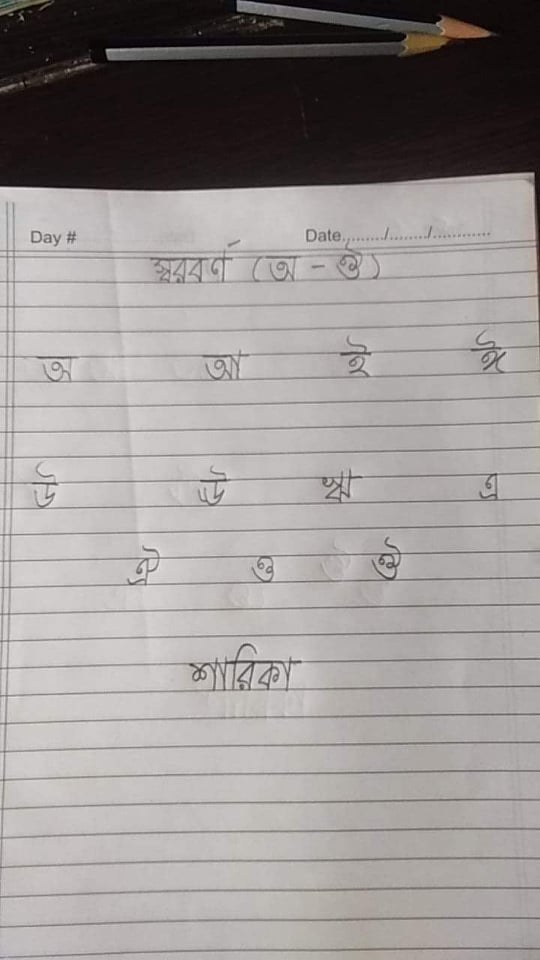 Day # Date........./......../............
স্বরবর্ণ (অ - ঔ)
অ আ ই ঈ
উ ঊ ঋ এ
ঐ ও ঔ
শারিকা